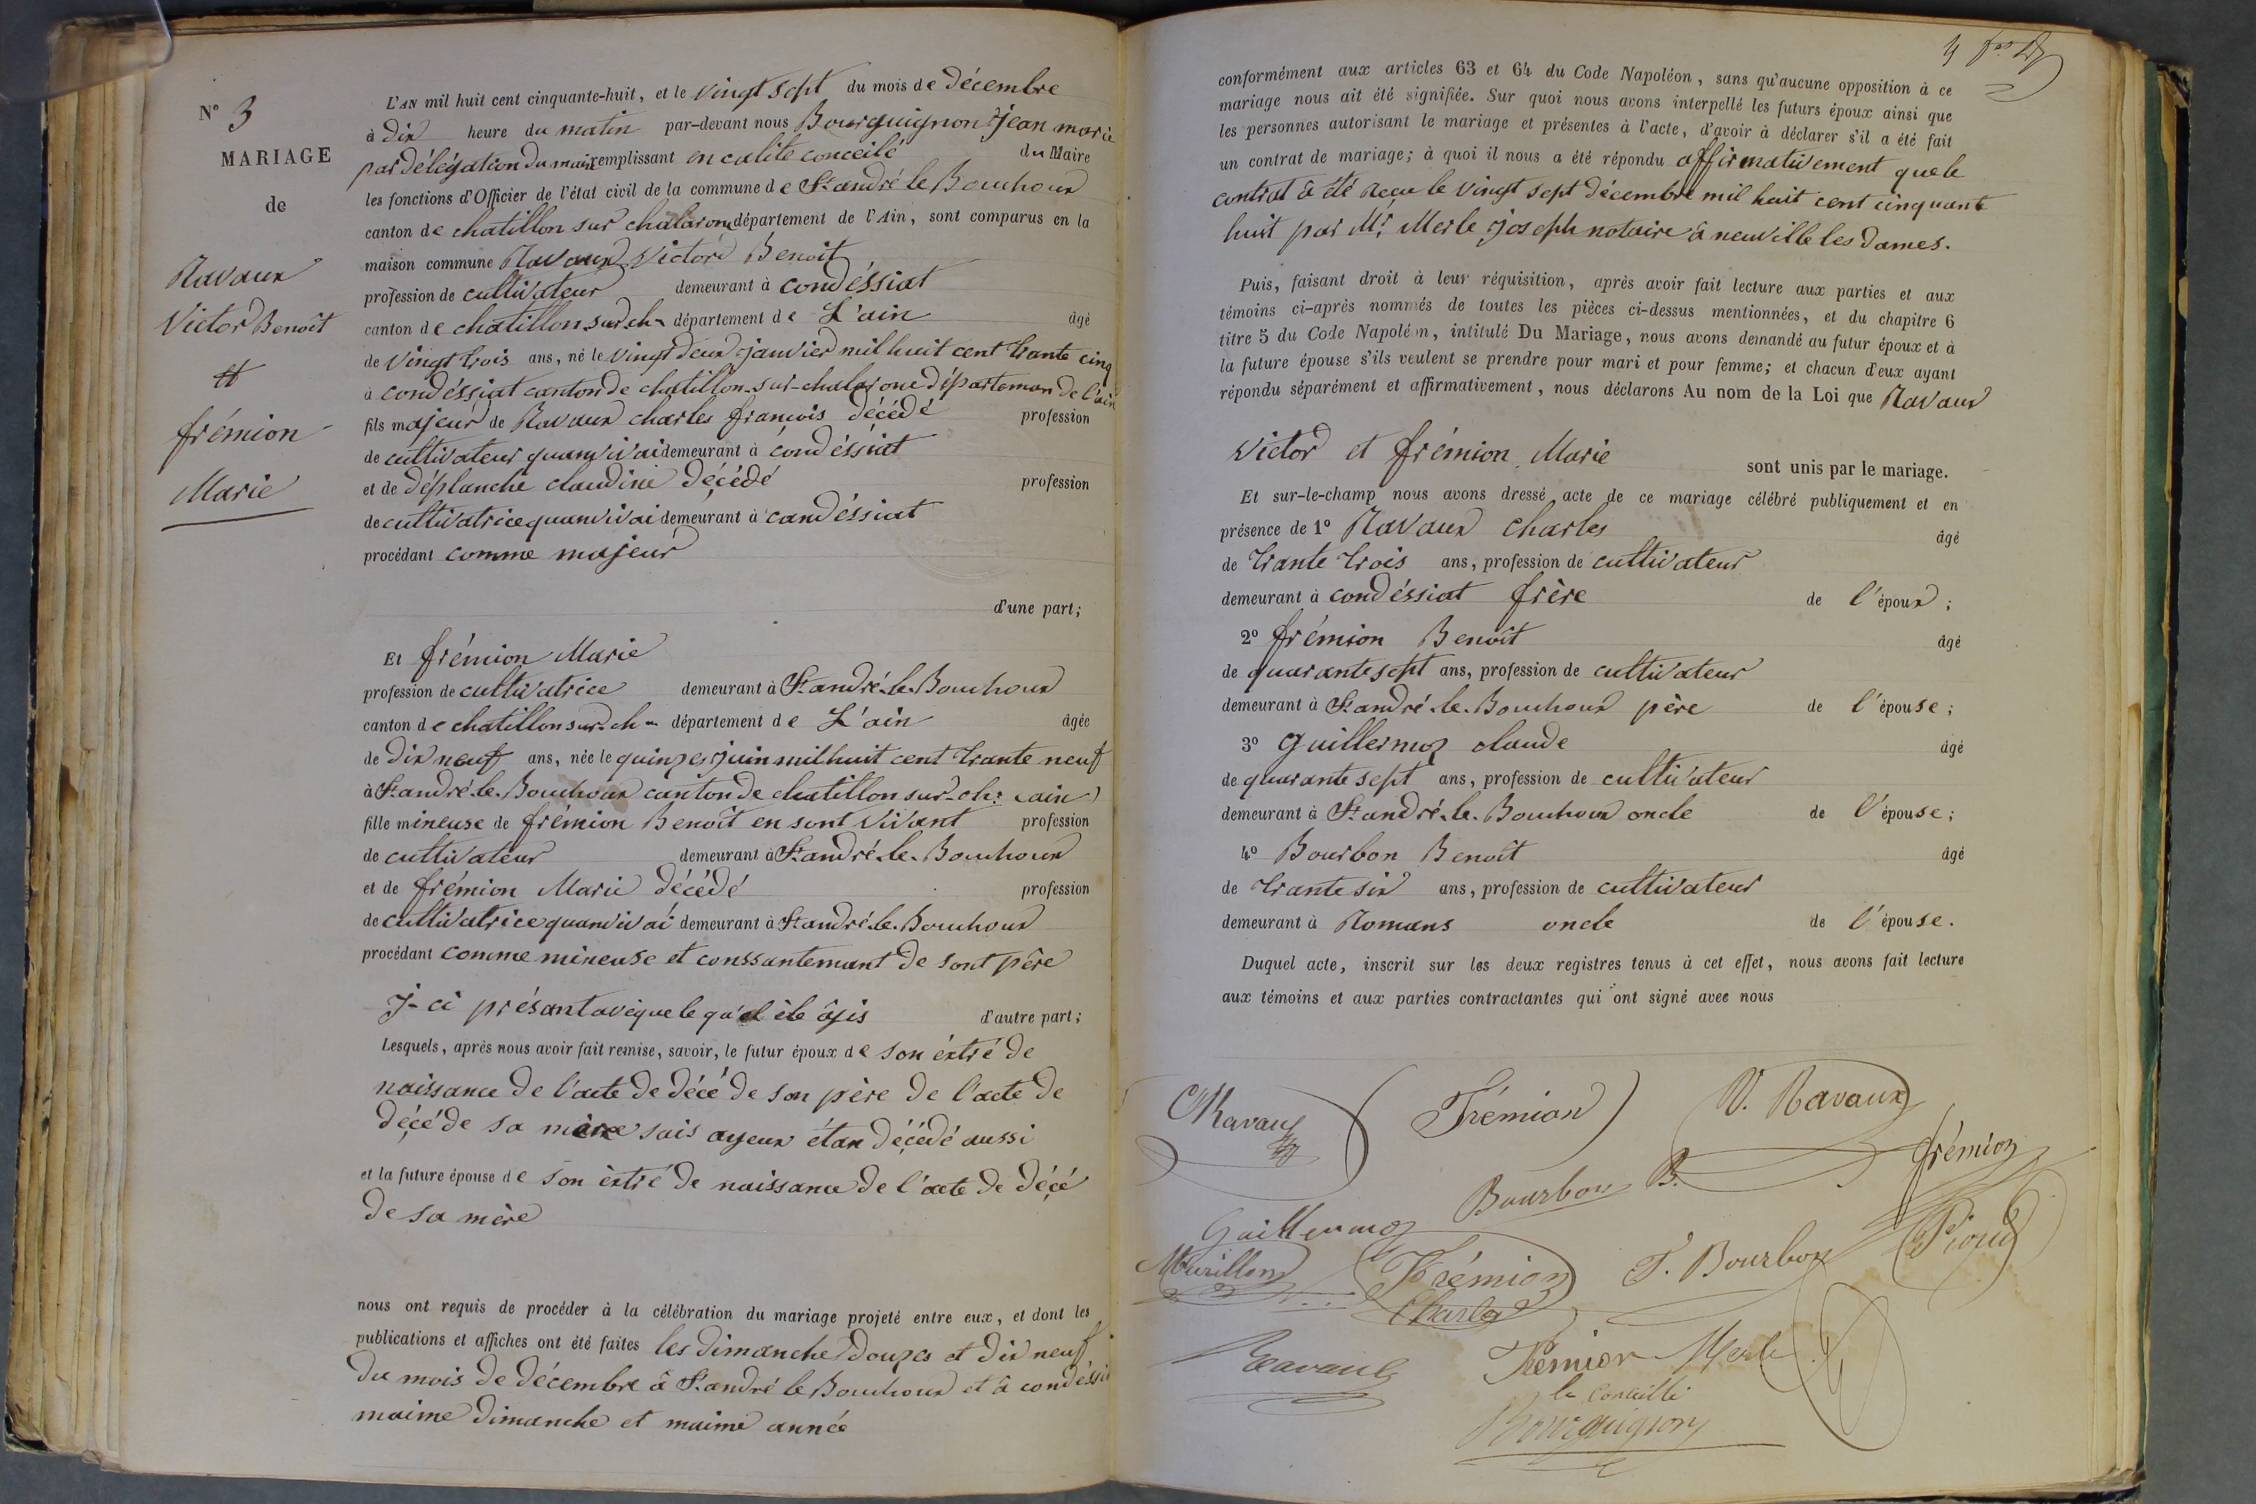 N° 3
MARIAGE
de
Ravaux
Victor Benoit
et
frémion
Marie
L'AN mil huit cent cinquante-huit, et le vingt sept du mois de Décembre
à Dix heure du matin par-devant nous Bourguignon jean marie
par délégation du maire remplissant en calite conceilé du Maire
les fonctions d'Officier de l'état civil de la commune de St andré le Bouchoux
canton de chatillon sur chalarone département de l'Ain, sont comparus en la
maison commune Ravaux Victor Benoit
profession de cultivateur demeurant à condéssiat
canton de chatillon sur ch- département de L'ain âgé
de vingt trois ans, né le vingt deux janvier mil huit cent trante cinq
à condéssiat canton de chatillon-sur-chalarone départeman de l'ain
fils majeur de Ravaux charles francois Décédé profession
de cultivateur quanvivai demeurant à condéssiat
et de déplanche claudine Décédé profession
de cultivatrice quanvivai demeurant à candéssiat
procédant comme majeur
d'une part;
Et frémion Marie
profession de cultivatrice demeurant à St andré-le-Bouchoux
canton de chatillon sur-ch- département de L'ain âgée
de Dix neuf ans, née le quinzes juin mil huit cent trante neuf
à St andré-le-Bouchoux canton de chatillon sur-ch: (ain)
fille mineuse de frémion Benoît en sont vivant profession
de cultivateur demeurant à St andré-le-Bouchoux
et de frémion Marie Décédé profession
de cultivatrice quanvivai demeurant à St andré-le-Bouchoux
procédant comme mineuse et conssantemant de sont père
j-ci présant avéque le qu'el éle âjis d'autre part;
Lesquels, après nous avoir fait remise, savoir, le futur époux de son éxtré de
naissance de l'acte de Décé de son père de l'acte de
Décé de sa mère sais ayeux étan Décédé aussi
et la future épouse de son éxtré de naissance de l'acte de Décé
de sa mère
nous ont requis de procéder à la célébration du mariage projeté entre eux, et dont les
publications et affiches ont été faites les Dimanche Douzes et Dix neuf
du mois de décembre â St andré le Bouchoux et â condéssi
maime Dimanche et maime année
conformément aux articles 63 et 64 du Code Napoléon, sans qu'aucune opposition à ce
mariage nous ait été signifiée. Sur quoi nous avons interpellé les futurs époux ainsi que
les personnes autorisant le mariage et présentes à l'acte, d'avoir à déclarer s'il a été fait
un contrat de mariage; à quoi il nous a été répondu affirmativement que le
contrat â été reçu le vingt sept décembre mil huit cent cinquant
huit par Mr Merle joseph notaire â neuville les Dames.
Puis, faisant droit à leur réquisition, après avoir fait lecture aux parties et aux
témoins ci-après nommés de toutes les pièces ci-dessus mentionnées, et du chapitre 6
titre 5 du Code Napoléon, intitulé Du Mariage, nous avons demandé au futur époux et à
la future épouse s'ils veulent se prendre pour mari et pour femme; et chacun d'eux ayant
répondu séparément et affirmativement, nous déclarons Au nom de la Loi que Ravaux
Victor et frémion Marie sont unis par le mariage.
Et sur-le-champ nous avons dressé acte de ce mariage célébré publiquement et en
présence de 1° Ravaux charles âgé
de trante trois ans, profession de cultivateur
demeurant à condéssiat frère de l'époux;
2° frémion Benoît âgé
de quarante sept ans, profession de cultivateur
demeurant à St andré-le-Bouchoux père de l'épouse;
3° Guillermoz claude âgé
de quarante sept ans, profession de cultivateur
demeurant à St andré-le-Bouchoux oncle de l'épouse;
4° Bourbon Benoît âgé
de trante six ans, profession de cultivateur
demeurant à Romans oncle de l'épouse.
Duquel acte, inscrit sur les deux registres tenus à cet effet, nous avons fait lecture
aux témoins et aux parties contractantes qui ont signé avec nous
C Ravaux Frémion V. Ravaux
frémion
Bourbon B.
Guillermoz
Frémion F. Bourbon
Charles
Ravaux Frémion Merle
le Conseillé
Bourguignon